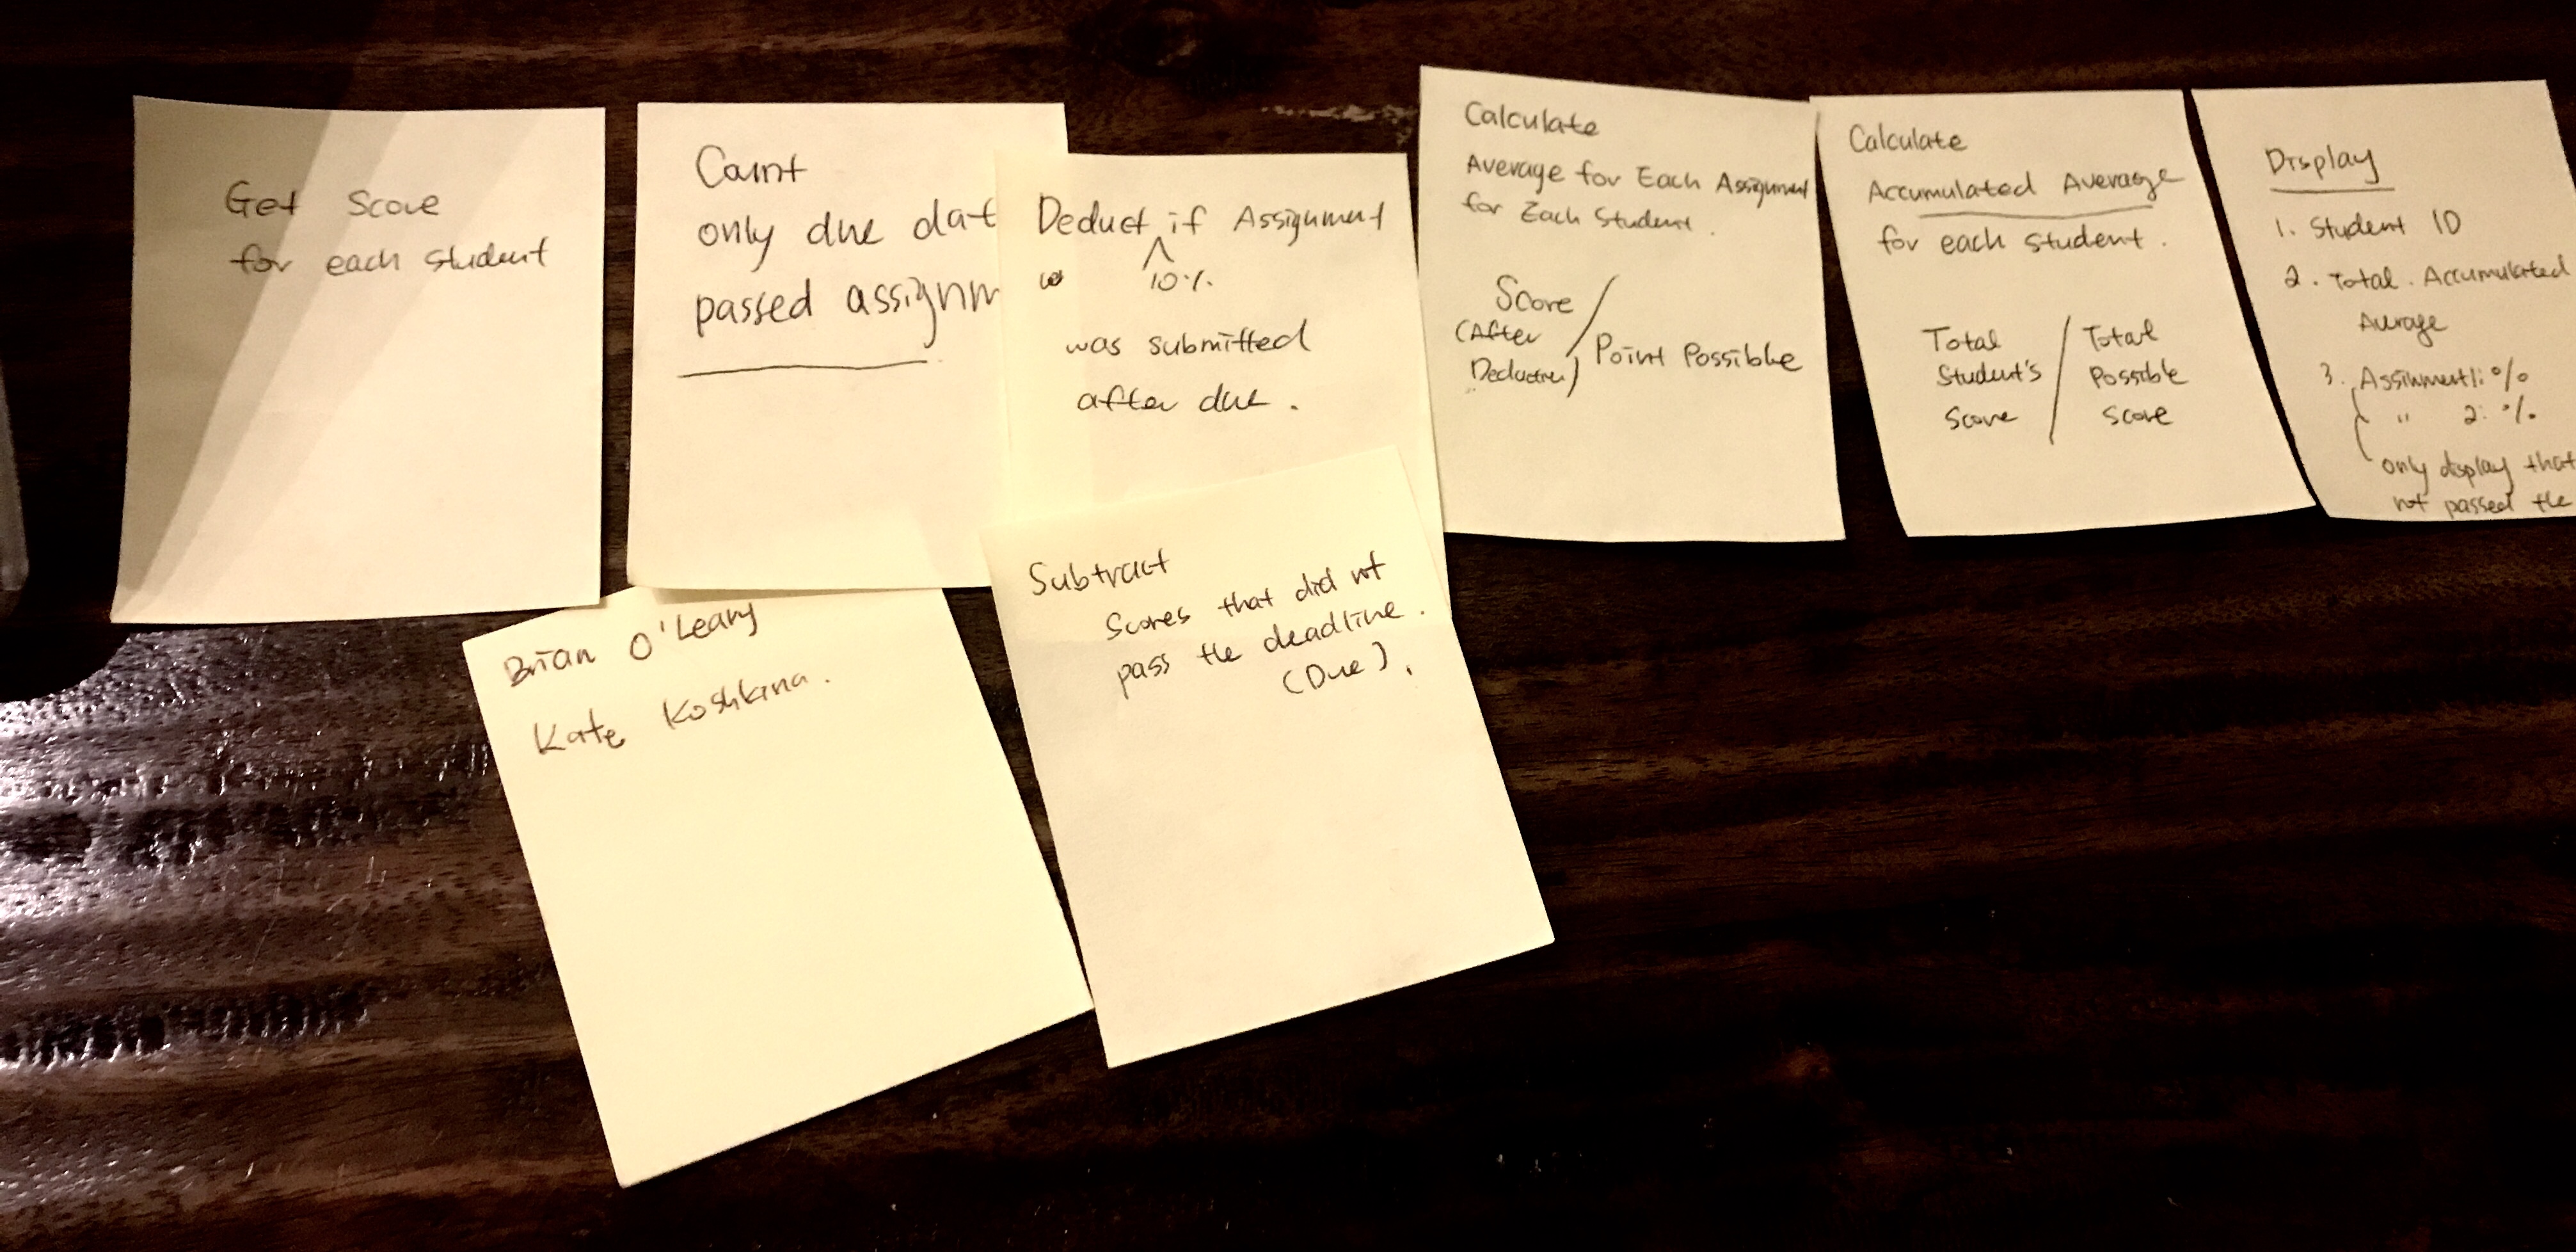 Get Score
for each student
Count
only due dat
passed assignm
Deduct if Assignment
10%
was submitted
after due.
Calculate
Average for Each Assignment
for Each Student.
Score
(After
Deduction) / Point Possible
Calculate
Accumulated Average
for each student.
Total / Total
Student's Possible
Score Score
Display
1. Student ID
2. Total. Accumulated
Average
3. Assinment1: %
" 2: %
only display that
not passed the
Brian O'Leary
Kate Koshkina.
Subtract
Scores that did not
pass the deadline.
(Due).